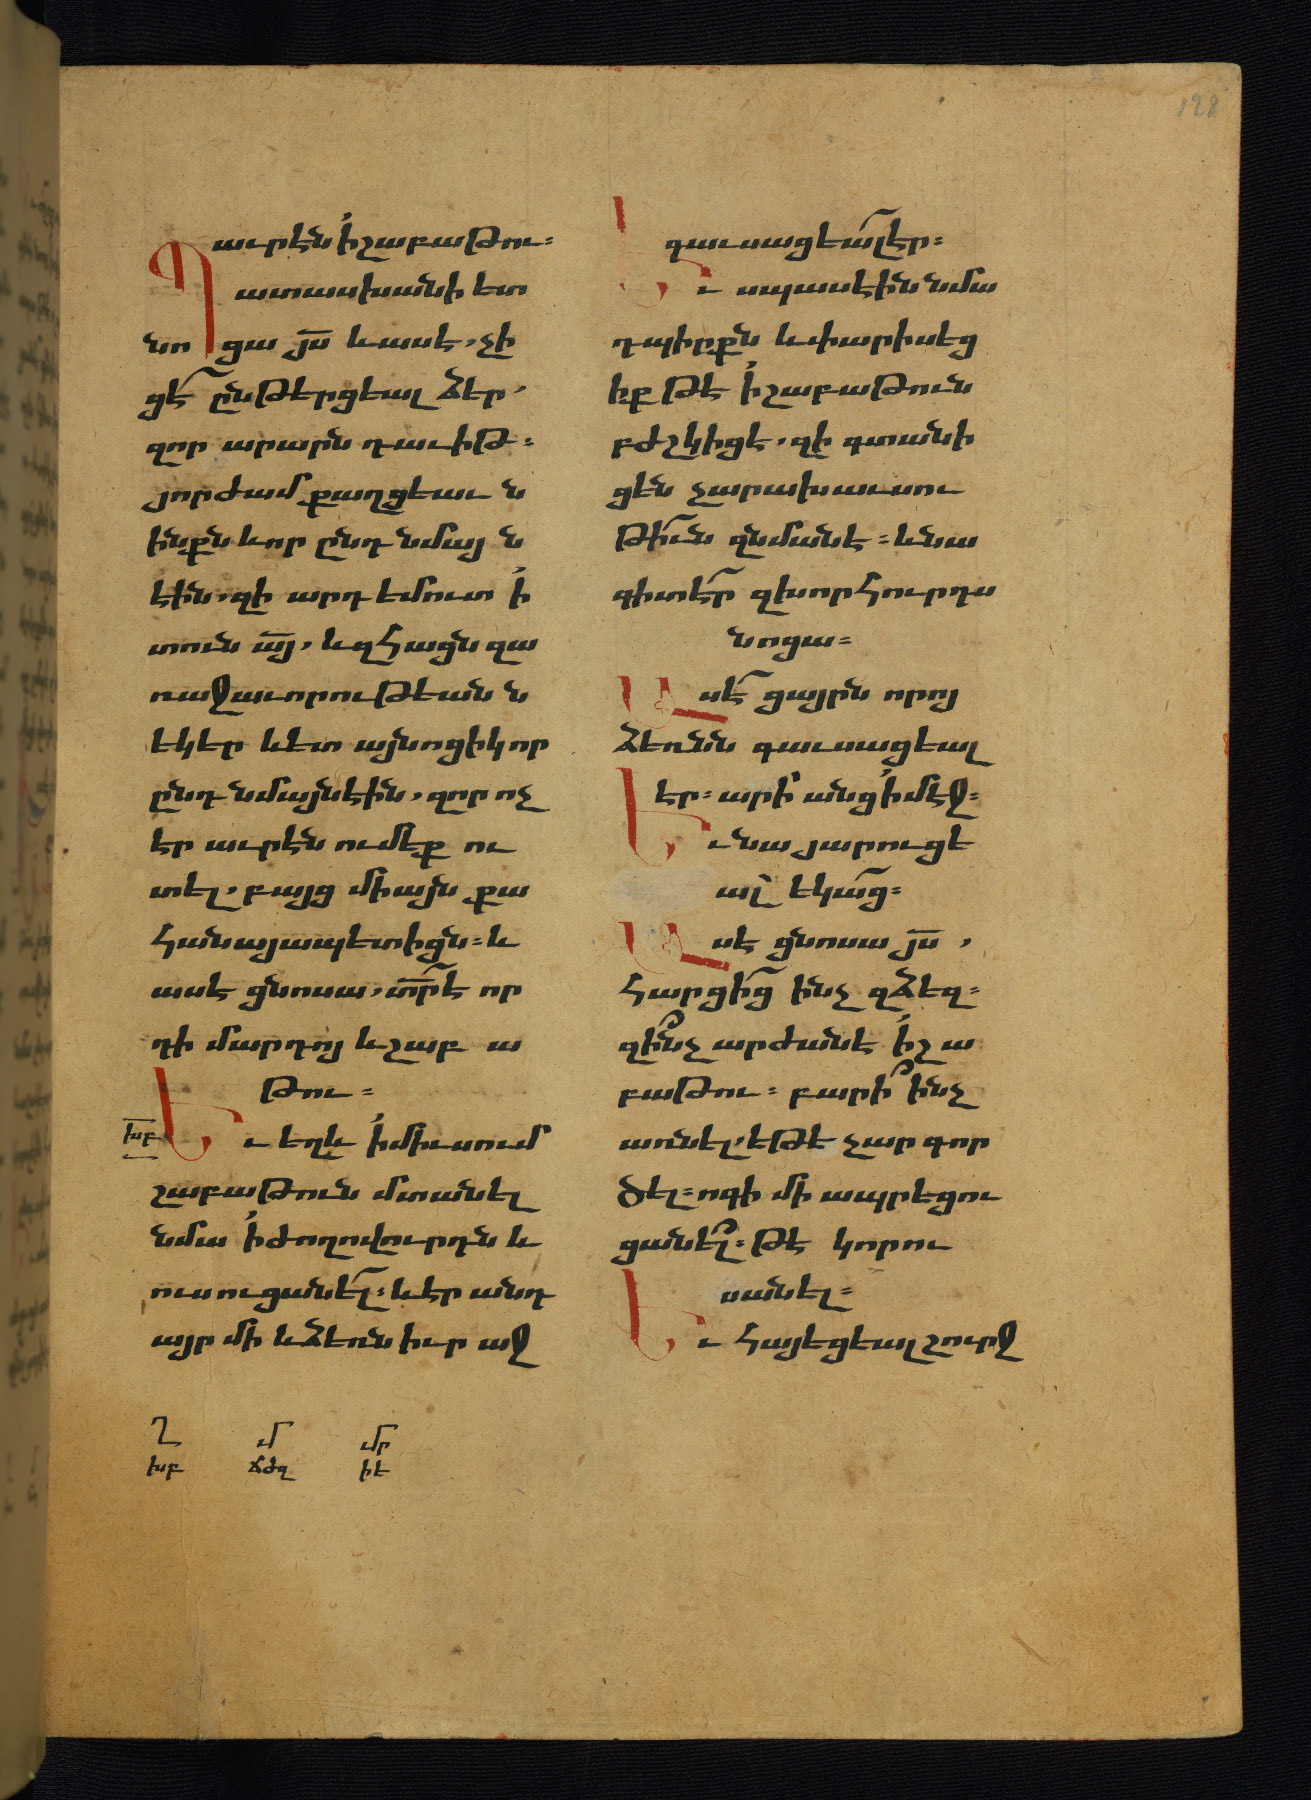 128
աւրէն ՛ի շաբաթու։
Պատասխանի ետ
նոցա յս և ասէ, չի
ցէ ընթերցեալ ձեր՝
զոր արարն դաւիթ։
յորժամ քաղցեաւ ն
ինքն և որ ընդ նմայ ն
էին, զի արդ եմուտ ՛ի
տուն այ, և զհացն զա
ռաջաւորութեան ն
եկեր և ետ այնոցիկ որ
ընդ նմայն էին, զոր ոչ
էր աւրէն ումեք ու
տել, բայց միայն քա
հանայապետիցն։ և
ասէ ցնոսա, տր է որ
դի մարդոյ և շաբա
թու։
խբ
Եւ եղև ՛ի միւսում
շաբաթուն մտանել
նմա ՛ի ժողովուրդն և
ուսուցանել։ և էր անդ
այր մի և ձեռն իւր աջ
գաւսացեալ էր։
Եւ սպասէին նմա
դպիրքն և փարիսեց
իք թէ ՛ի շաբաթուն
բժշկիցէ, զի գտանի
ցեն չարախաւսու
թիւն զնմանէ։ և նա
գիտէր զխորհուրդս
նոցա։
Ասէ ցայրն որոյ
ձեռնն գաւսացեալ
էր։ արի անց ՛ի մէջ։
Եւ նա յարուցե
ալ եկաց։
Ասէ ցնոսա յս,
հարցից ինչ զձեզ։
զինչ արժանէ ՛ի շա
բաթու։ բարի ինչ
առնել, եթէ չար գոր
ծել։ ոգի մի ապրեցու
ցանել։ թէ կորու
սանել։
Եւ հայեցեալ շուրջ
Ղ մ մր
խբ ճժզ իէ